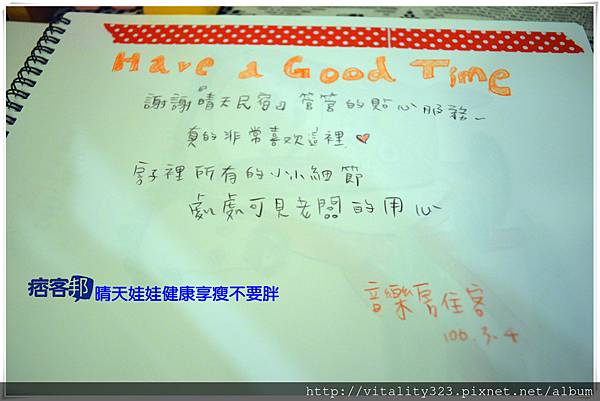 Have a Good Time
謝謝『晴天民宿』管管的貼心服務~
真的非常喜歡這裡♥
房子裡所有的小小細節
處處可見老闆的用心
痞客邦 晴天娃娃健康享瘦不要胖
音樂房住客
100.3.4
http://vitality323.pixnet.net/album